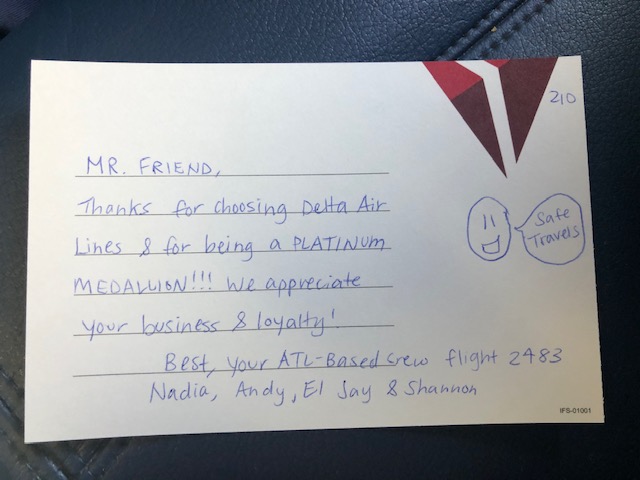 210
MR. FRIEND,
Thanks for choosing Delta Air
Lines & for being a PLATINUM
MEDALLION!!! We appreciate
your business & loyalty!
Best, your ATL-Based crew flight 2483
Nadia, Andy, El Jay & Shannon
Safe
Travels
IFS-01001